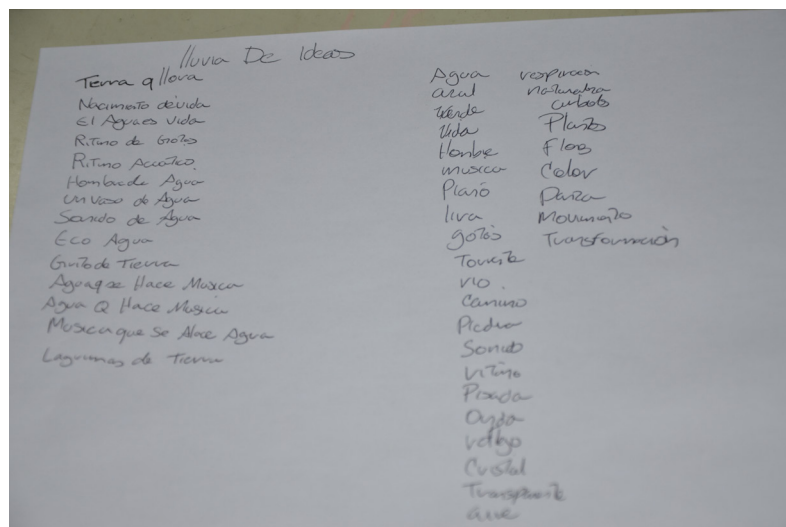 lluvia De Ideas
Tierra q llora
Nacimiento de vida
El Agua es vida
Ritmo de Gotas
Ritmo Acuático.
Hombre de Agua
un vaso de Agua
Sonido de Agua
Eco Agua
Grito de Tierra
Agua q se Hace Musica
Agua Q Hace Musica
Musica que se Hace Agua
Lagrimas de Tierra
Agua
azul
Verde
Vida
Hombre
musica
Piano
lira
gotas
Torrente
rio.
Camino
Piedra
Sonido
ritmo
Pisada
Onda
Cristal
Transparente
respiracion
naturaleza
arboles
Plantas
Flores
Color
Danza
Movimiento
Transformación